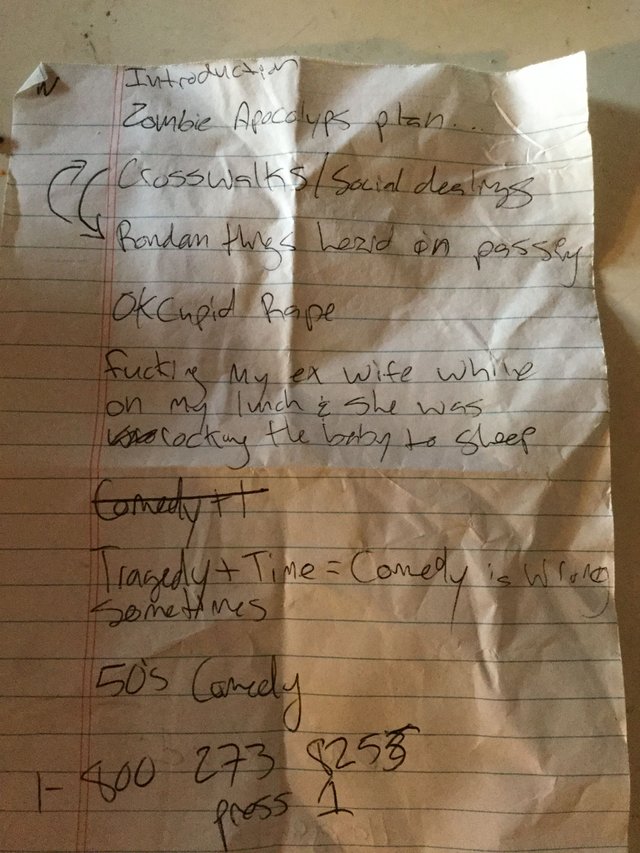 Introduction
Zombie Apocalyps plan...
Crosswalks/Social dealings
Randam things heard on passby
OKCupid Rape
Fucking my ex wife while
on my lunch & she was
rocking the baby to sleep
Comedy + 1
Tragedy + Time = Comedy is wrong
sometimes
50's Comedy
1-800 273 8255
press 1